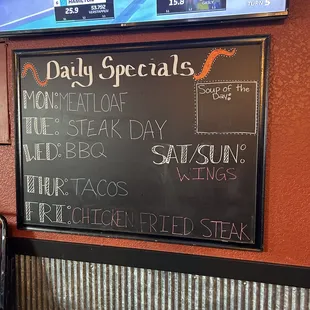 HAMILTON
25.9
53.752
VERSTAPPEN
15.8
Daily Specials
Soup of the
Day:
MON: MEATLOAF
TUE: STEAK DAY
WED: BBQ
SAT/SUN:
WINGS
THUR: TACOS
FRI: CHICKEN FRIED STEAK